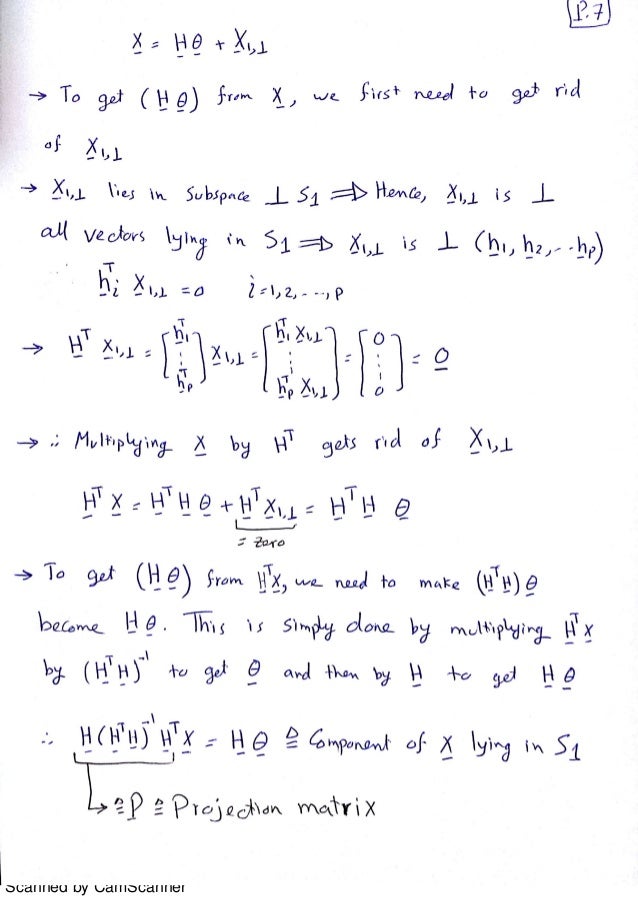 P.7
X = Hθ + X₁,⊥
→ To get (Hθ) from X, we first need to get rid
of X₁,⊥
→ X₁,⊥ lies in subspace ⊥ S1 ⇒ Hence, X₁,⊥ is ⊥
all vectors lying in S1 ⇒ X₁,⊥ is ⊥ (h₁, h₂, --- hₚ)
hᵢᵀ X₁,⊥ = 0   i = 1, 2, ---, p
→ Hᵀ X₁,⊥ = [h₁ᵀ ⋮ hₚᵀ] X₁,⊥ = [h₁ᵀ X₁,⊥ ⋮ hₚᵀ X₁,⊥] = [0 ⋮ 0] = 0
→ ∴ Multiplying X by Hᵀ gets rid of X₁,⊥
Hᵀ X = Hᵀ H θ + Hᵀ X₁,⊥ = Hᵀ H θ
= zero
→ To get (Hθ) from HᵀX, we need to make (HᵀH) θ
become Hθ. This is simply done by multiplying HᵀX
by (HᵀH)⁻¹ to get θ and then by H to get Hθ
∴ H(HᵀH)⁻¹HᵀX = Hθ ≙ Component of X lying in S1
↳ ≙ P ≙ Projection matrix
Scanned by CamScanner